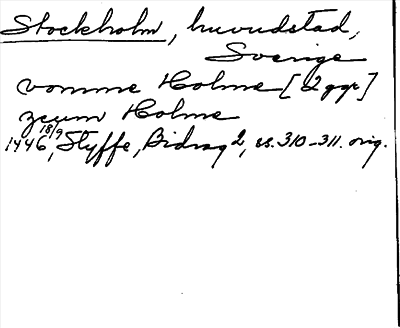 Stockholm, huvudstad,
Sverige
vomme Holme [2 ggr]
zcum Holme
1446 18/9, Styffe, Bidrag 2, ss. 310-311. orig.